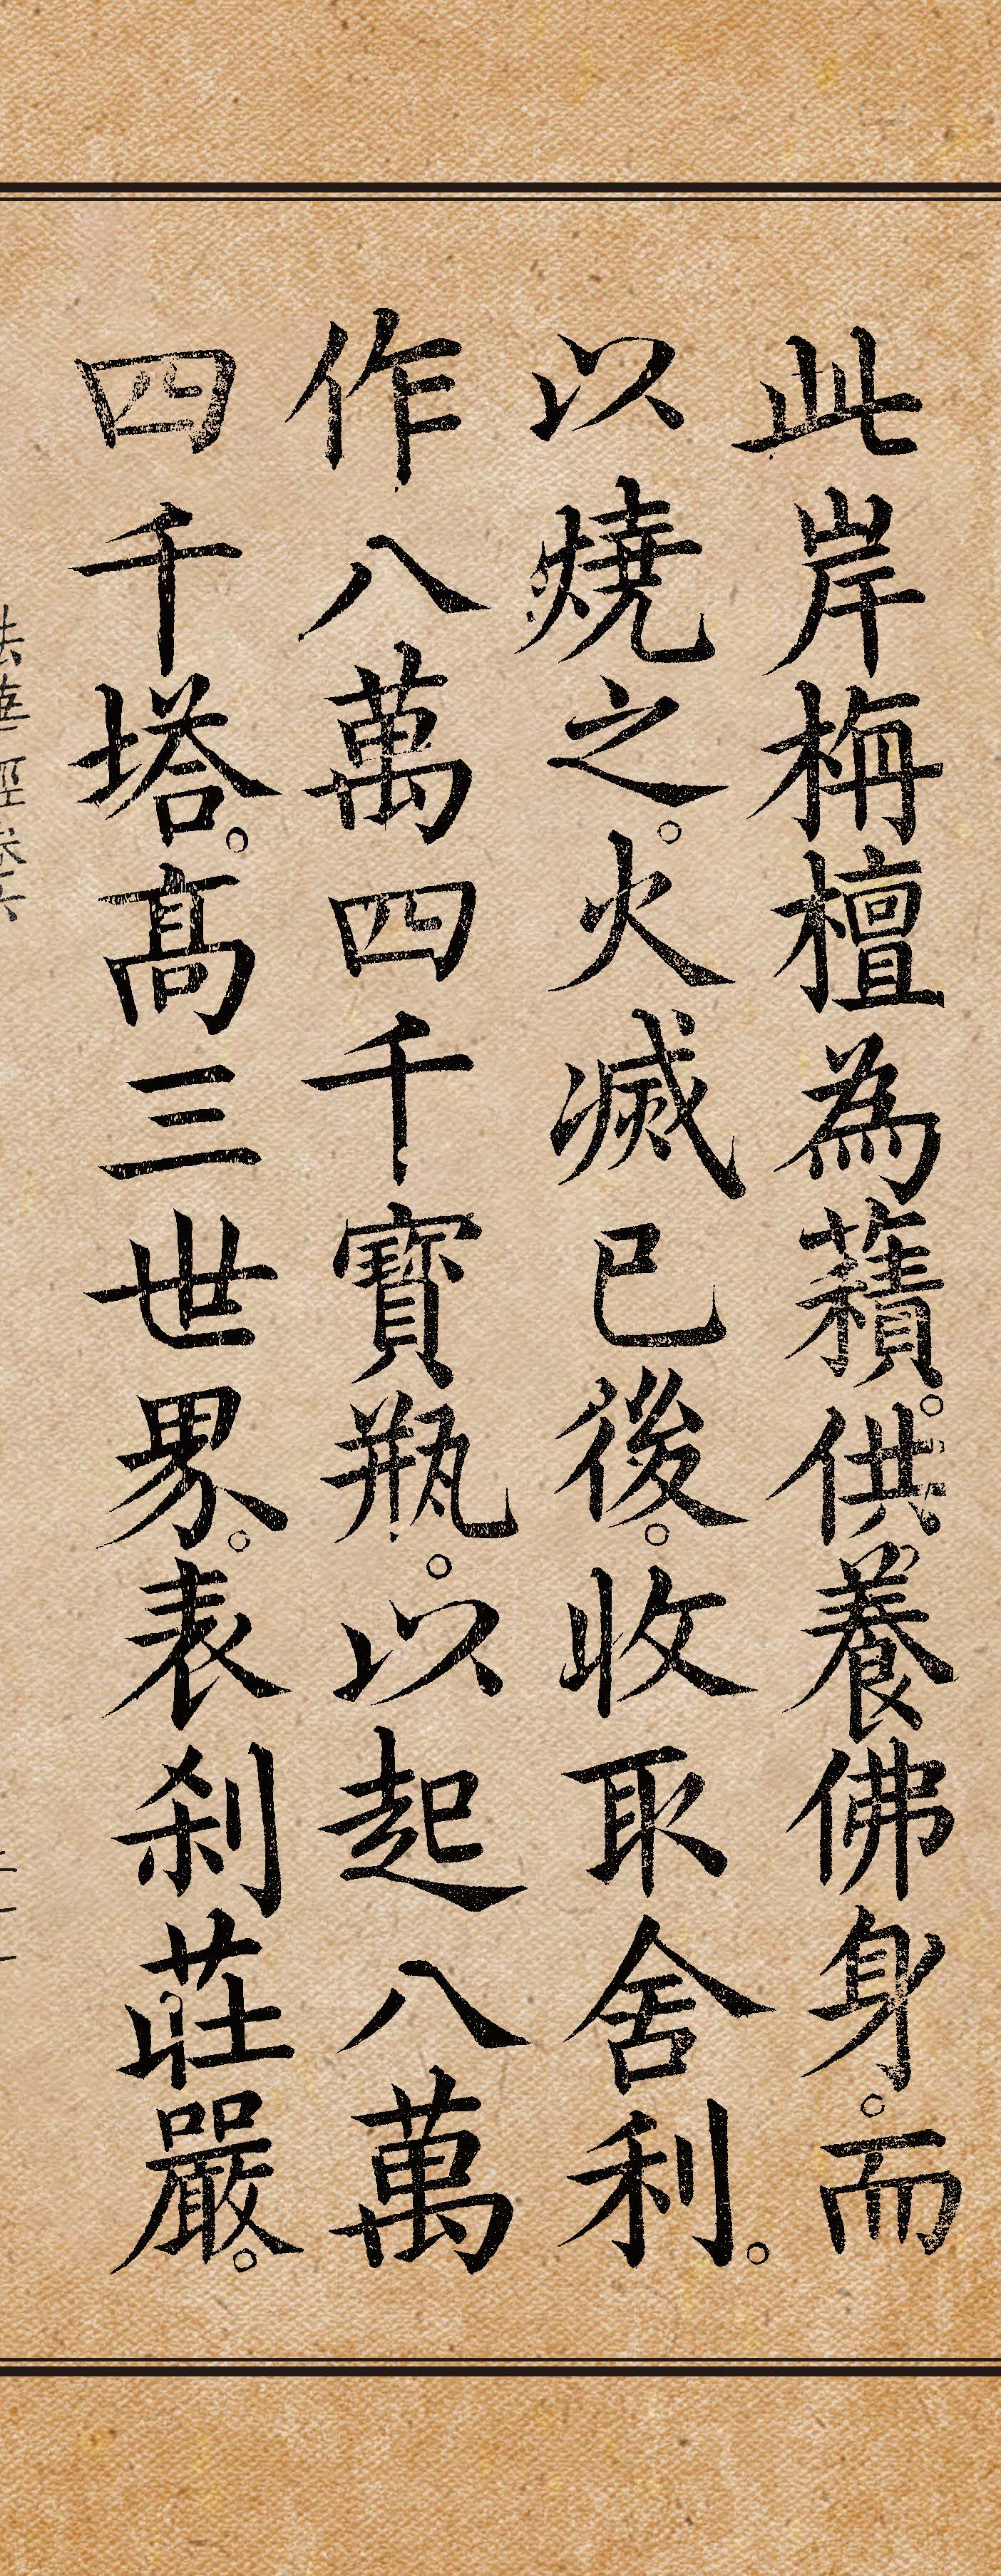 此岸栴檀為䕸。供養佛身。而
以燒之。火滅已後。收取舍利。
作八萬四千寶瓶。以起八萬
四千塔。高三世界。表剎莊嚴。
法華經卷六